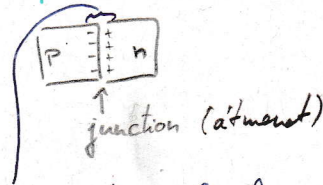 p - - - - + + + + n
junction (átmenet)